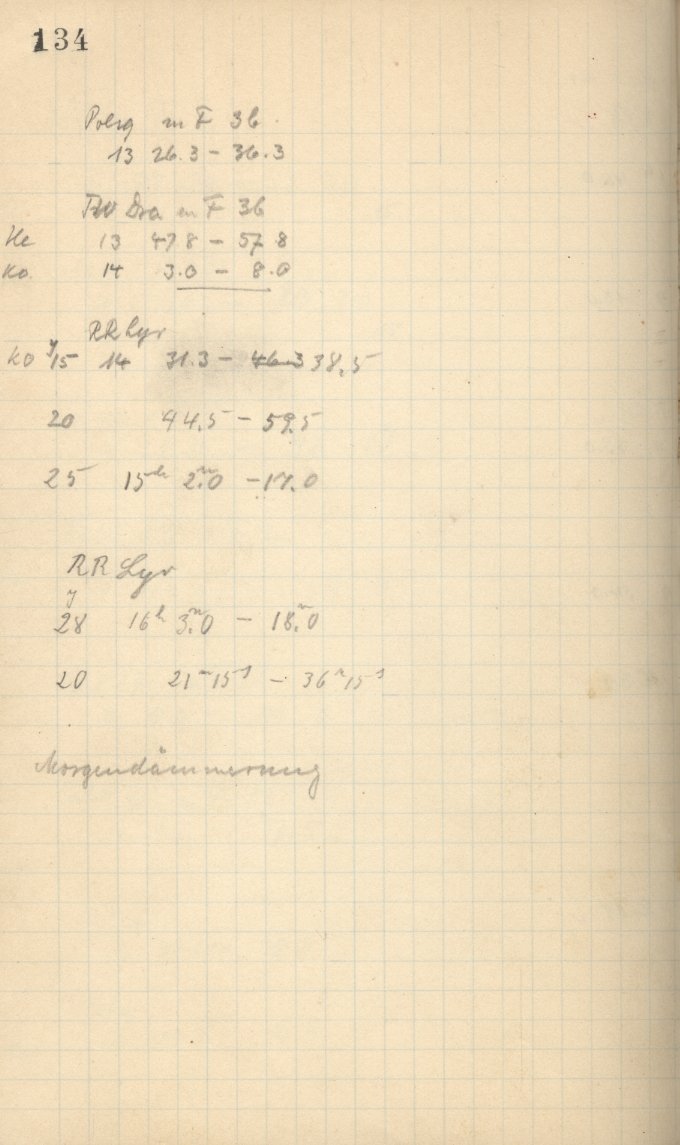 134
Polsq m F 3b
13 26.3 – 36.3
TW Dra m F 3b
He 13 47.8 – 57.8
Ko 14 3.0 – 8.0
RR Lyr
Ko 15 14 31.3 – 46.3 38.5
20 44.5 – 59.5
25 15h 2m.0 – 17.0
RR Lyr
28 16h 3m.0 – 18m.0
20 21m15s – 36m15s
Morgendämmerung